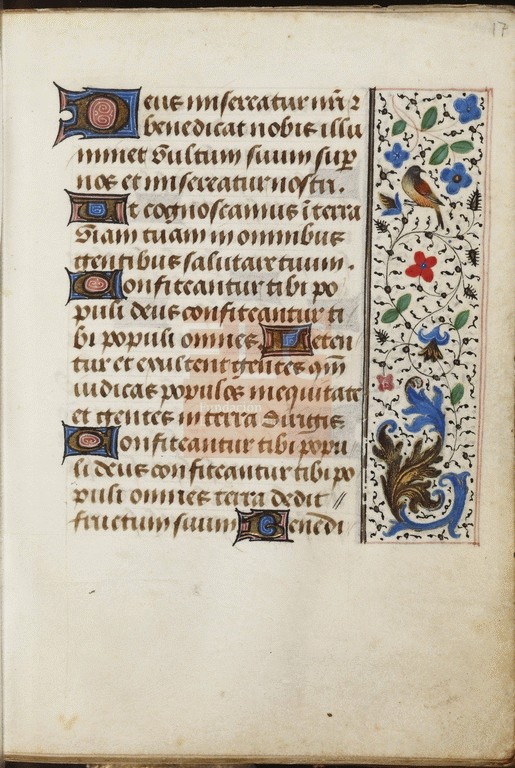 17
Deus misereatur nr̄i ⁊
benedicat nobis illu
minet vultum suum sup̄
nos et misereatur nostri .
Ut cognoscamus ī terra
viam tuam in omnibus
gentibus salutare tuum .
Confiteantur tibi po
puli deus confiteantur ti
bi populi omnes . Leten
tur et exultent gentes qm̄
iudicas populos in equitate
et gentes in terra dirigis
Confiteantur tibi popu
li deus confiteantur tibi po
puli omnes terra dedit //
fructum suum Benedi
Fundación